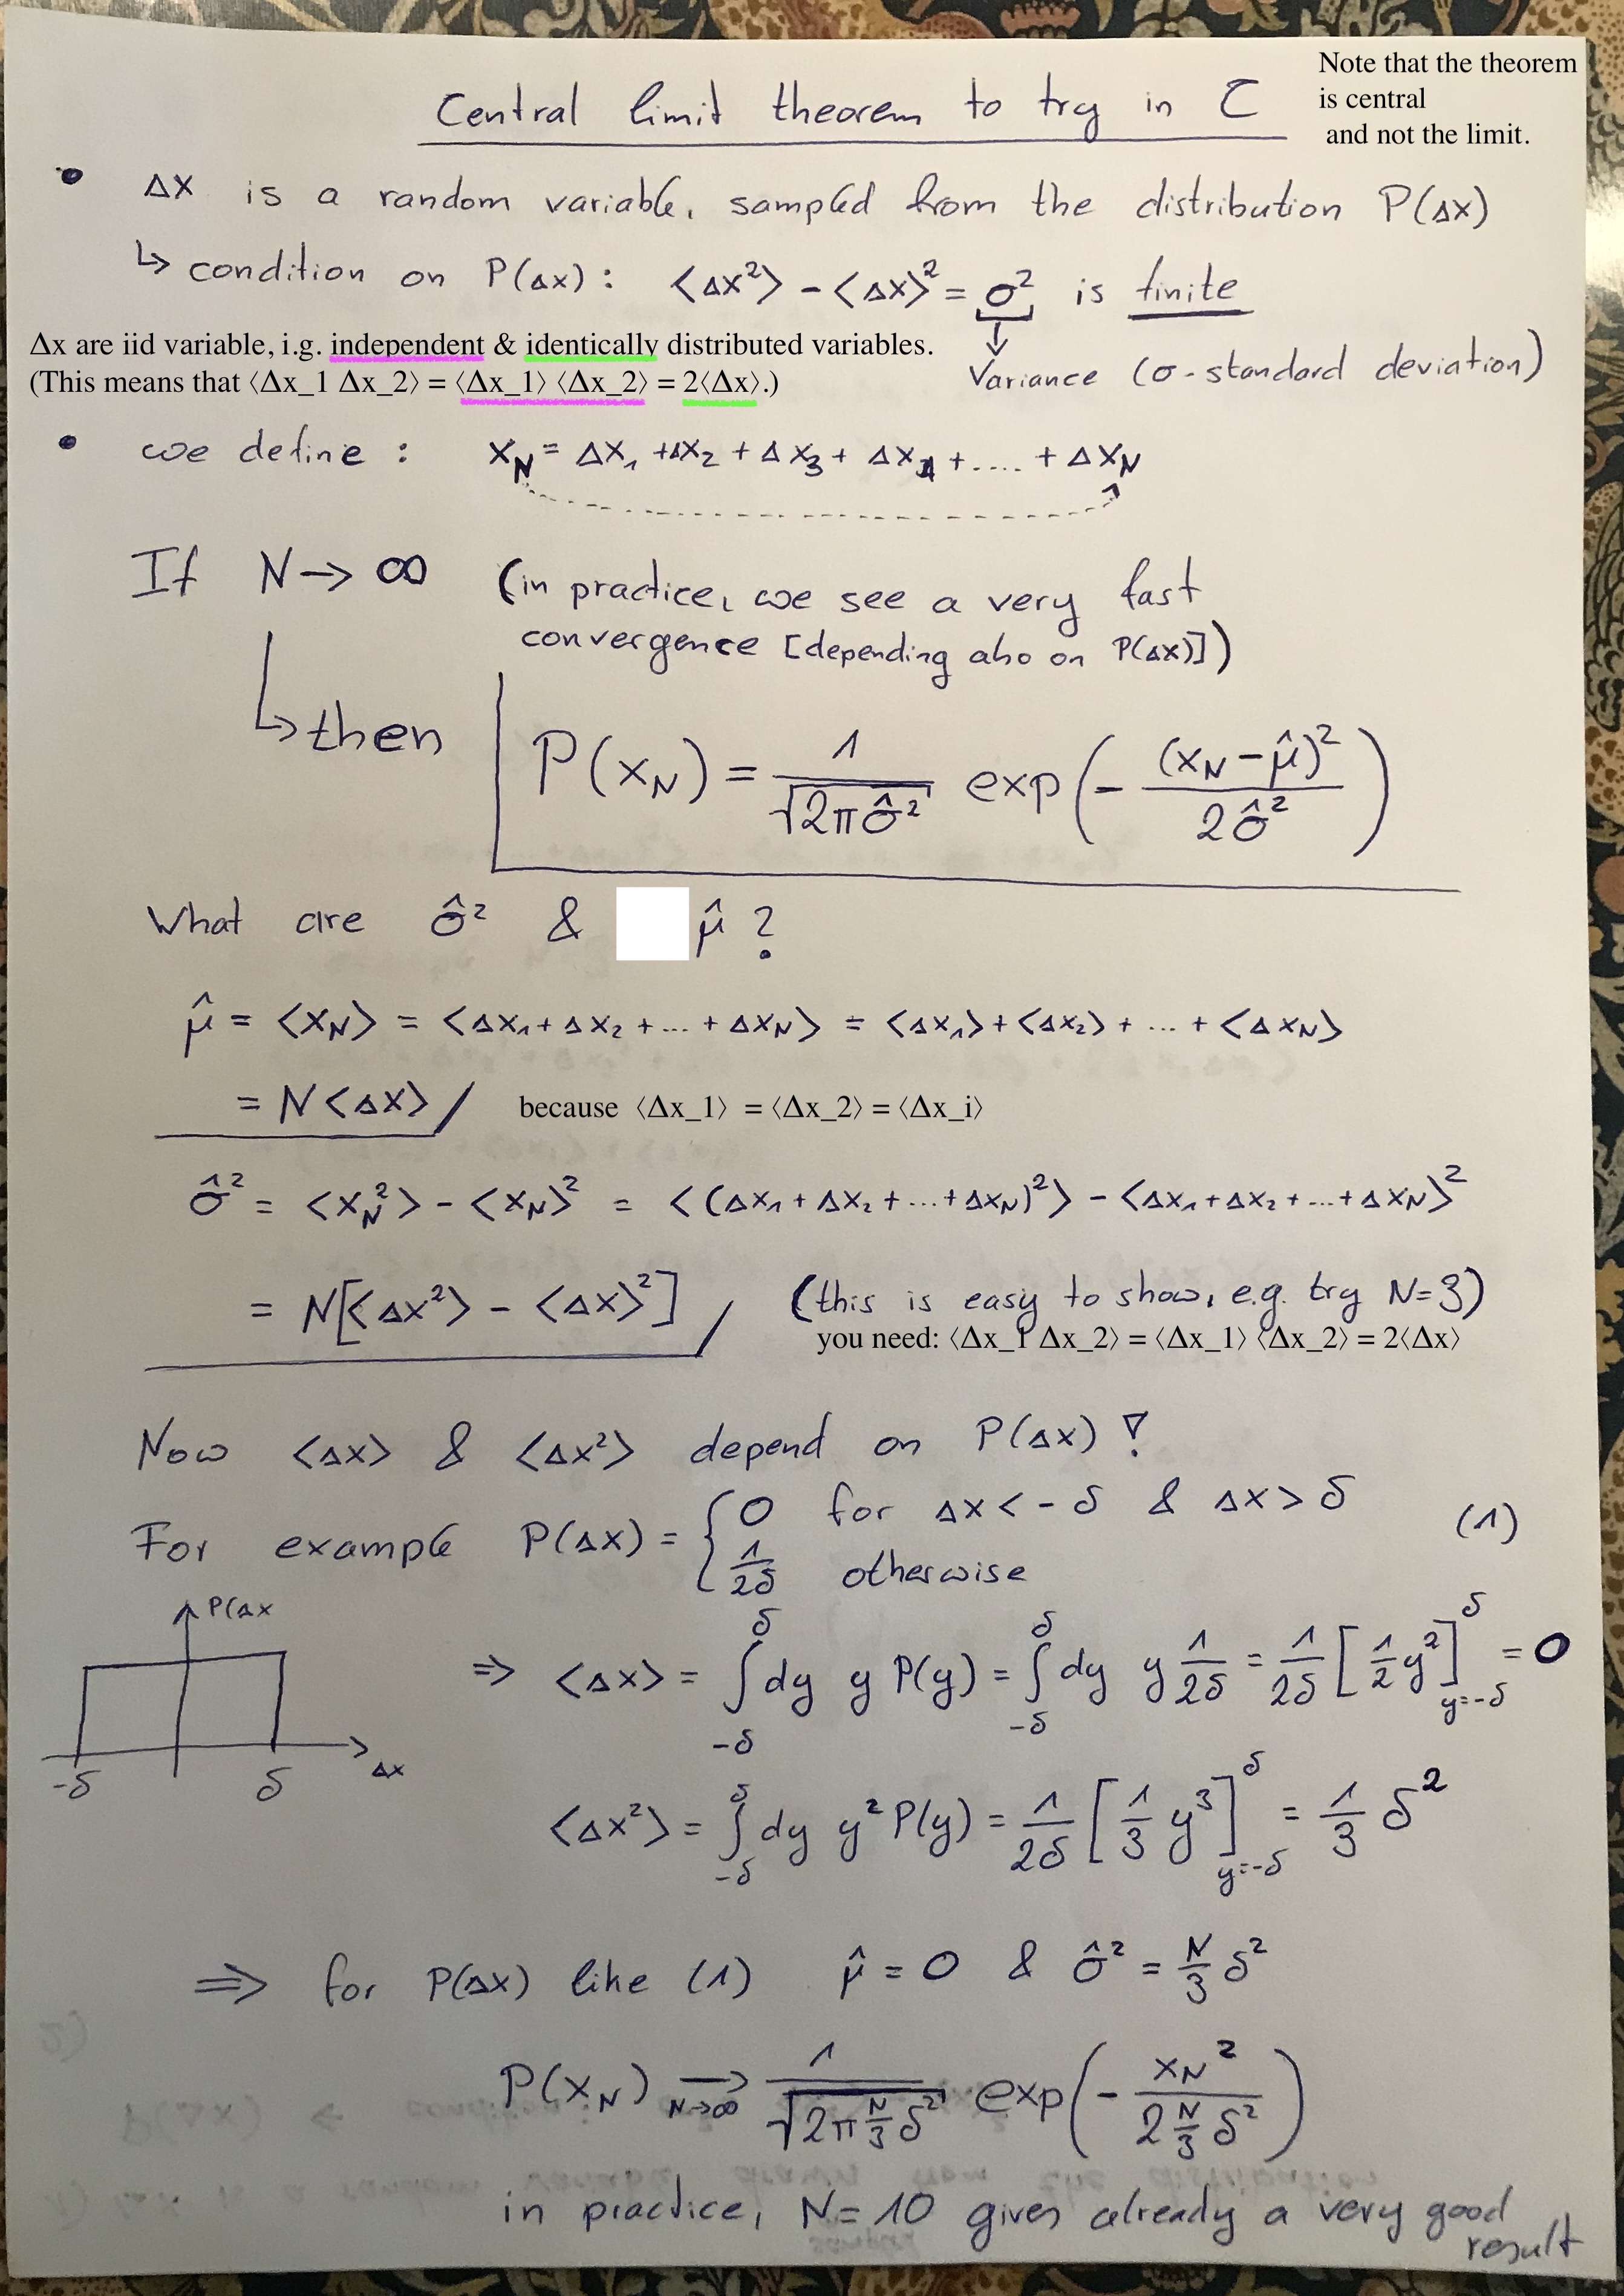 Central limit theorem to try in C
Note that the theorem
is central
and not the limit.
• Δx is a random variable, sampled from the distribution P(Δx)
↳ condition on P(Δx) : ⟨Δx²⟩ - ⟨Δx⟩² = σ² is finite
Δx are iid variable, i.g. independent & identically distributed variables.
(This means that ⟨Δx_1 Δx_2⟩ = ⟨Δx_1⟩ ⟨Δx_2⟩ = 2⟨Δx⟩.)
↓
Variance (σ - standard deviation)
• we define : x_N = Δx₁ + Δx₂ + Δx₃ + Δx₄ + .... + Δx_N
If N → ∞ (in practice, we see a very fast
convergence [depending also on P(Δx)])
↳ then P(x_N) = 1/√(2πσ̂²) exp(- (x_N - μ̂)²/2σ̂²)
What are σ̂² & μ̂ ?
μ̂ = ⟨x_N⟩ = ⟨Δx₁ + Δx₂ + ... + Δx_N⟩ = ⟨Δx₁⟩ + ⟨Δx₂⟩ + ... + ⟨Δx_N⟩
= N⟨Δx⟩ because ⟨Δx_1⟩ = ⟨Δx_2⟩ = ⟨Δx_i⟩
σ̂² = ⟨x_N²⟩ - ⟨x_N⟩² = ⟨(Δx₁ + Δx₂ + ... + Δx_N)²⟩ - ⟨Δx₁ + Δx₂ + ... + Δx_N⟩²
= N[⟨Δx²⟩ - ⟨Δx⟩²] (this is easy to show, e.g. try N=3)
you need: ⟨Δx_1 Δx_2⟩ = ⟨Δx_1⟩ ⟨Δx_2⟩ = 2⟨Δx⟩
Now ⟨Δx⟩ & ⟨Δx²⟩ depend on P(Δx) !
For example P(Δx) = { 0 for Δx < -δ & Δx > δ (1)
1/2δ otherwise
P(Δx
-δ δ Δx
⇒ ⟨Δx⟩ = ∫_{-δ}^{δ} dy y P(y) = ∫_{-δ}^{δ} dy y 1/2δ = 1/2δ [1/2 y²]_{y=-δ}^{δ} = 0
⟨Δx²⟩ = ∫_{-δ}^{δ} dy y² P(y) = 1/2δ [1/3 y³]_{y=-δ}^{δ} = 1/3 δ²
⇒ for P(Δx) like (1) μ̂ = 0 & σ̂² = N/3 δ²
P(x_N) →_{N→∞} 1/√(2π N/3 δ²) exp(- x_N²/(2 N/3 δ²))
in practice, N = 10 gives already a very good
result